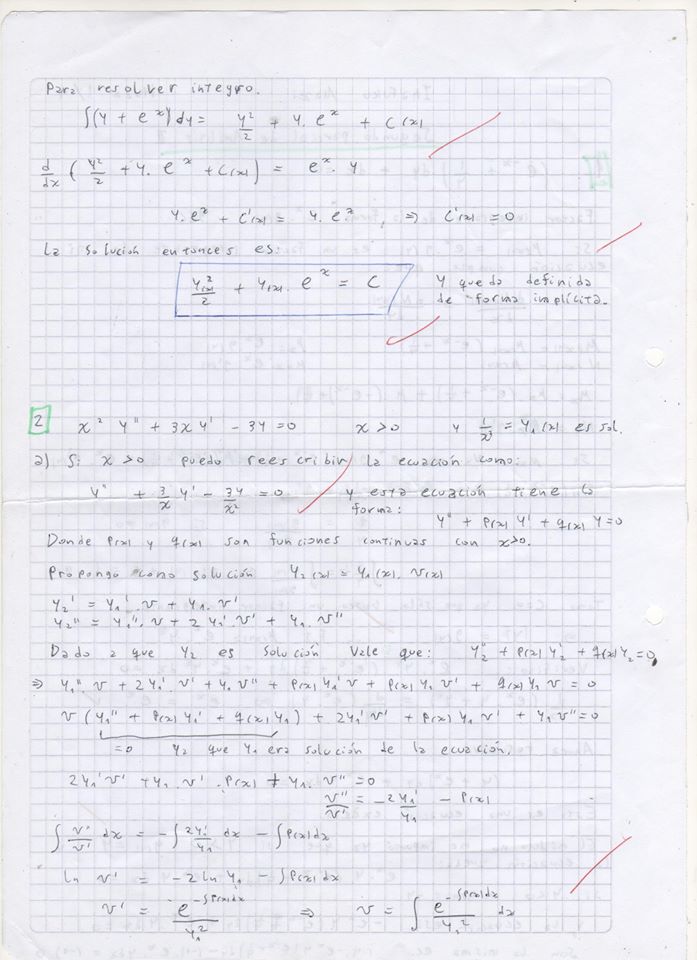 Para resolver integro.
∫(y + e^x) dy = y²/2 + y. e^x + C(x)
d/dx (y²/2 + y. e^x + C(x)) = e^x. y
y. e^x + C'(x) = y. e^x, ⇒ C'(x) = 0
La solución entonces es:
y(x)²/2 + y(x). e^x = C
y queda definida
de forma implícita.
2 x² y'' + 3x y' - 3y = 0 x > 0 y 1/x³ = y₁(x) es sol.
a) Si x > 0 puedo reescribir la ecuación como:
y'' + 3/x y' - 3y/x² = 0 y esta ecuación tiene la
forma:
y'' + p(x) y' + q(x) y = 0
Donde p(x) y q(x) son funciones continuas con x>0.
Propongo como solución y₂(x) = y₁(x). v(x)
y₂' = y₁'. v + y₁. v'
y₂'' = y₁''. v + 2 y₁'. v' + y₁. v''
Dado a que y₂ es solución vale que: y₂'' + p(x) y₂' + q(x) y₂ = 0
⇒ y₁'' v + 2y₁'. v' + y₁ v'' + p(x) y₁' v + p(x) y₁ v' + q(x) y₁ v = 0
v (y₁'' + p(x) y₁' + q(x) y₁) + 2y₁' v' + p(x) y₁ v' + y₁ v'' = 0
=0 ya que y₁ era solución de la ecuación.
2y₁' v' + y₁. v'. p(x) + y₁. v'' = 0
v''/v' = - 2y₁'/y₁ - p(x)
∫ v''/v' dx = -∫ 2y₁'/y₁ dx - ∫p(x) dx
ln v' = -2 ln y₁ - ∫p(x) dx
v' = e^(-∫p(x)dx)/y₁² ⇒ v = ∫ e^(-∫p(x)dx)/y₁² dx